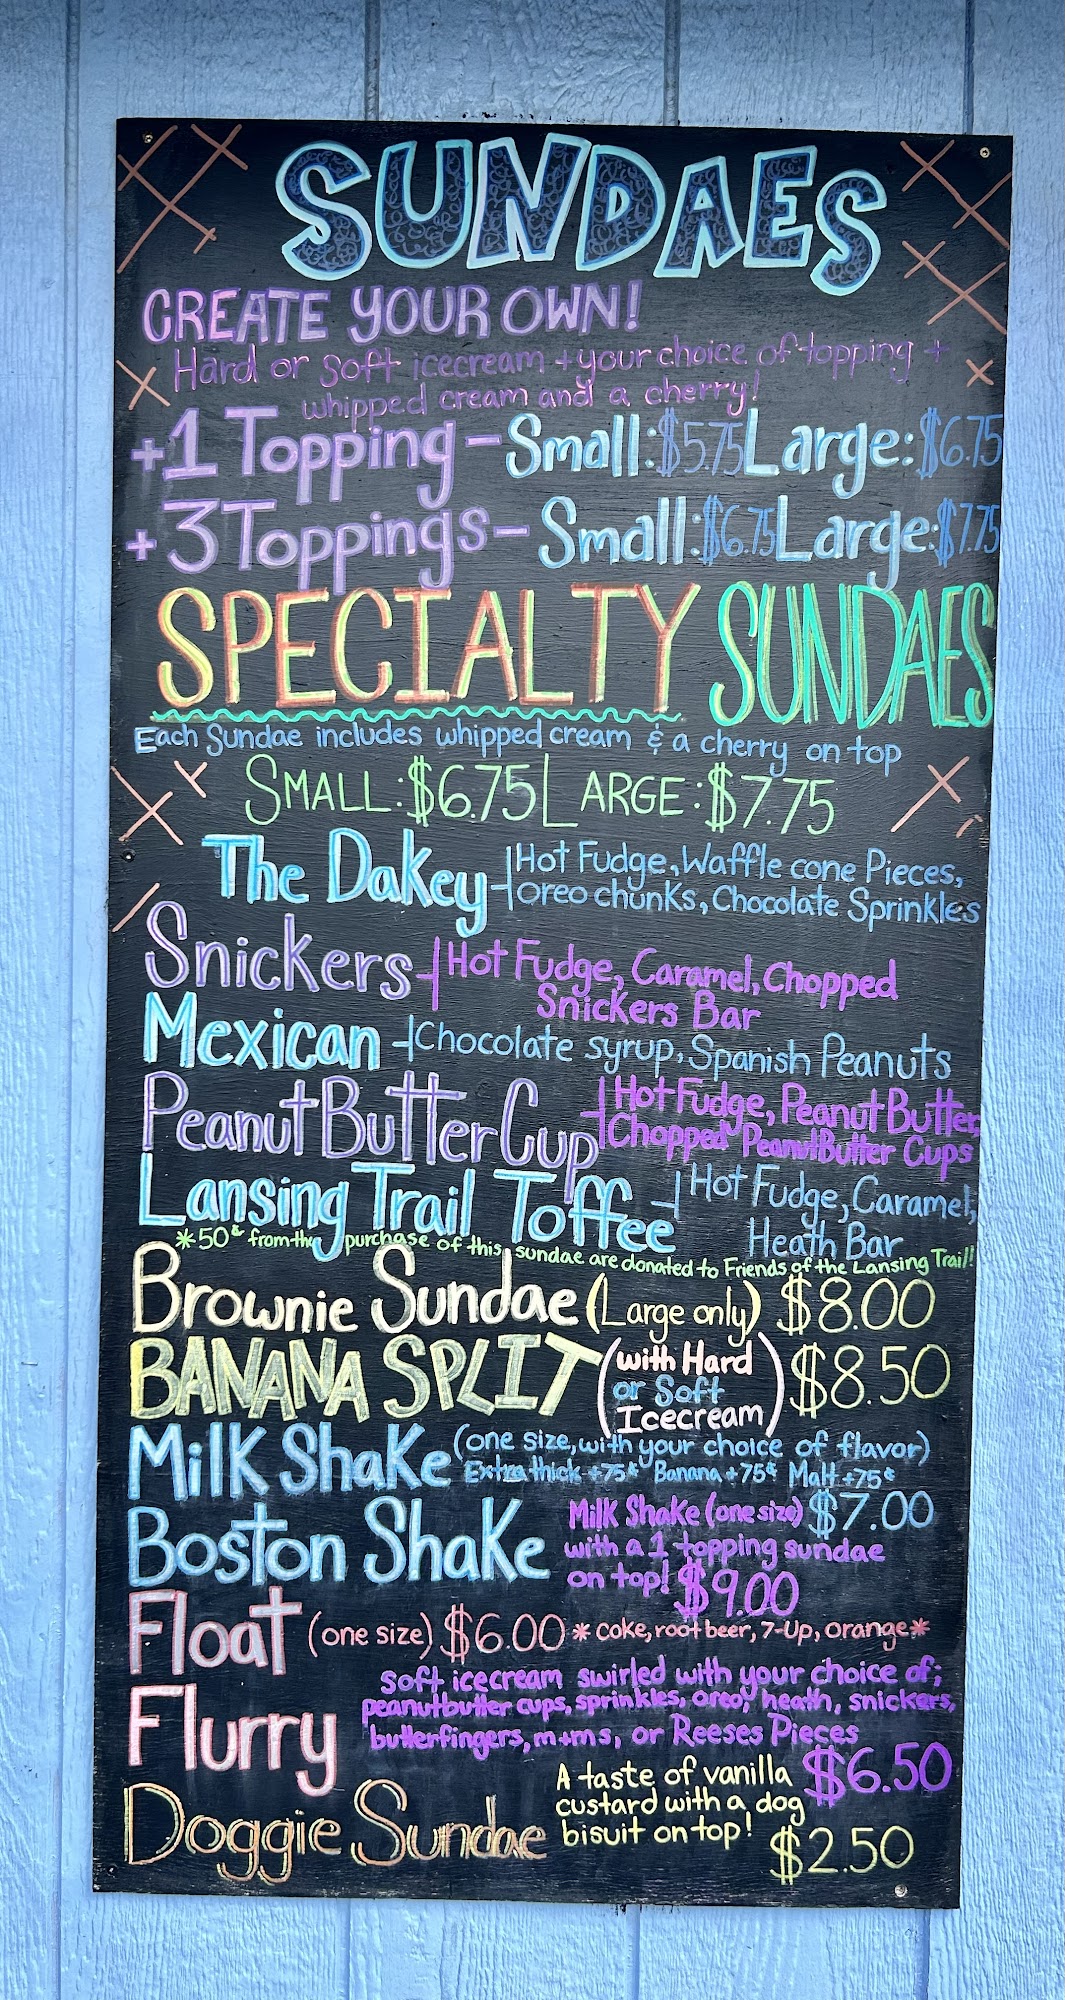 SUNDAES
CREATE YOUR OWN!
Hard or soft icecream + your choice of topping +
whipped cream and a cherry!
+1 Topping - Small: $5.75 Large: $6.75
+3 Toppings - Small: $6.75 Large: $7.75
SPECIALTY SUNDAES
Each Sundae includes whipped cream & a cherry on top
SMALL: $6.75 LARGE: $7.75
The Dakey - Hot Fudge, Waffle cone Pieces,
oreo chunks, Chocolate Sprinkles
Snickers - Hot Fudge, Caramel, Chopped
Snickers Bar
Mexican - Chocolate syrup, Spanish Peanuts
Peanut Butter Cup - Hot Fudge, Peanut Butter,
Chopped Peanut Butter Cups
Lansing Trail Toffee - Hot Fudge, Caramel,
Heath Bar
*50¢ from the purchase of this sundae are donated to Friends of the Lansing Trail!
Brownie Sundae (Large only) $8.00
BANANA SPLIT (with Hard
or Soft
Icecream) $8.50
Milk Shake (one size, with your choice of flavor)
Extra thick +75¢ Banana +75¢ Malt +75¢
$7.00
Boston Shake Milk Shake (one size)
with a 1 topping sundae
on top! $9.00
Float (one size) $6.00 * coke, root beer, 7-Up, orange*
Flurry soft icecream swirled with your choice of;
peanutbutter cups, sprinkles, oreo, heath, snickers,
butterfingers, m+ms, or Reeses Pieces
$6.50
Doggie Sundae A taste of vanilla
custard with a dog
bisuit on top! $2.50